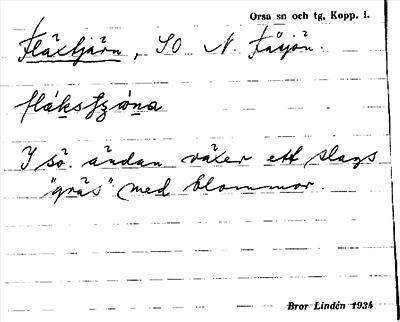 Orsa sn och tg, Kopp. l.
Fläxtjärn, SO N. Fåsjön.
fláksʃzä̀ṇa
I sö. ändan växer ett slags
"gräs" med blommor.
Bror Lindén 1934